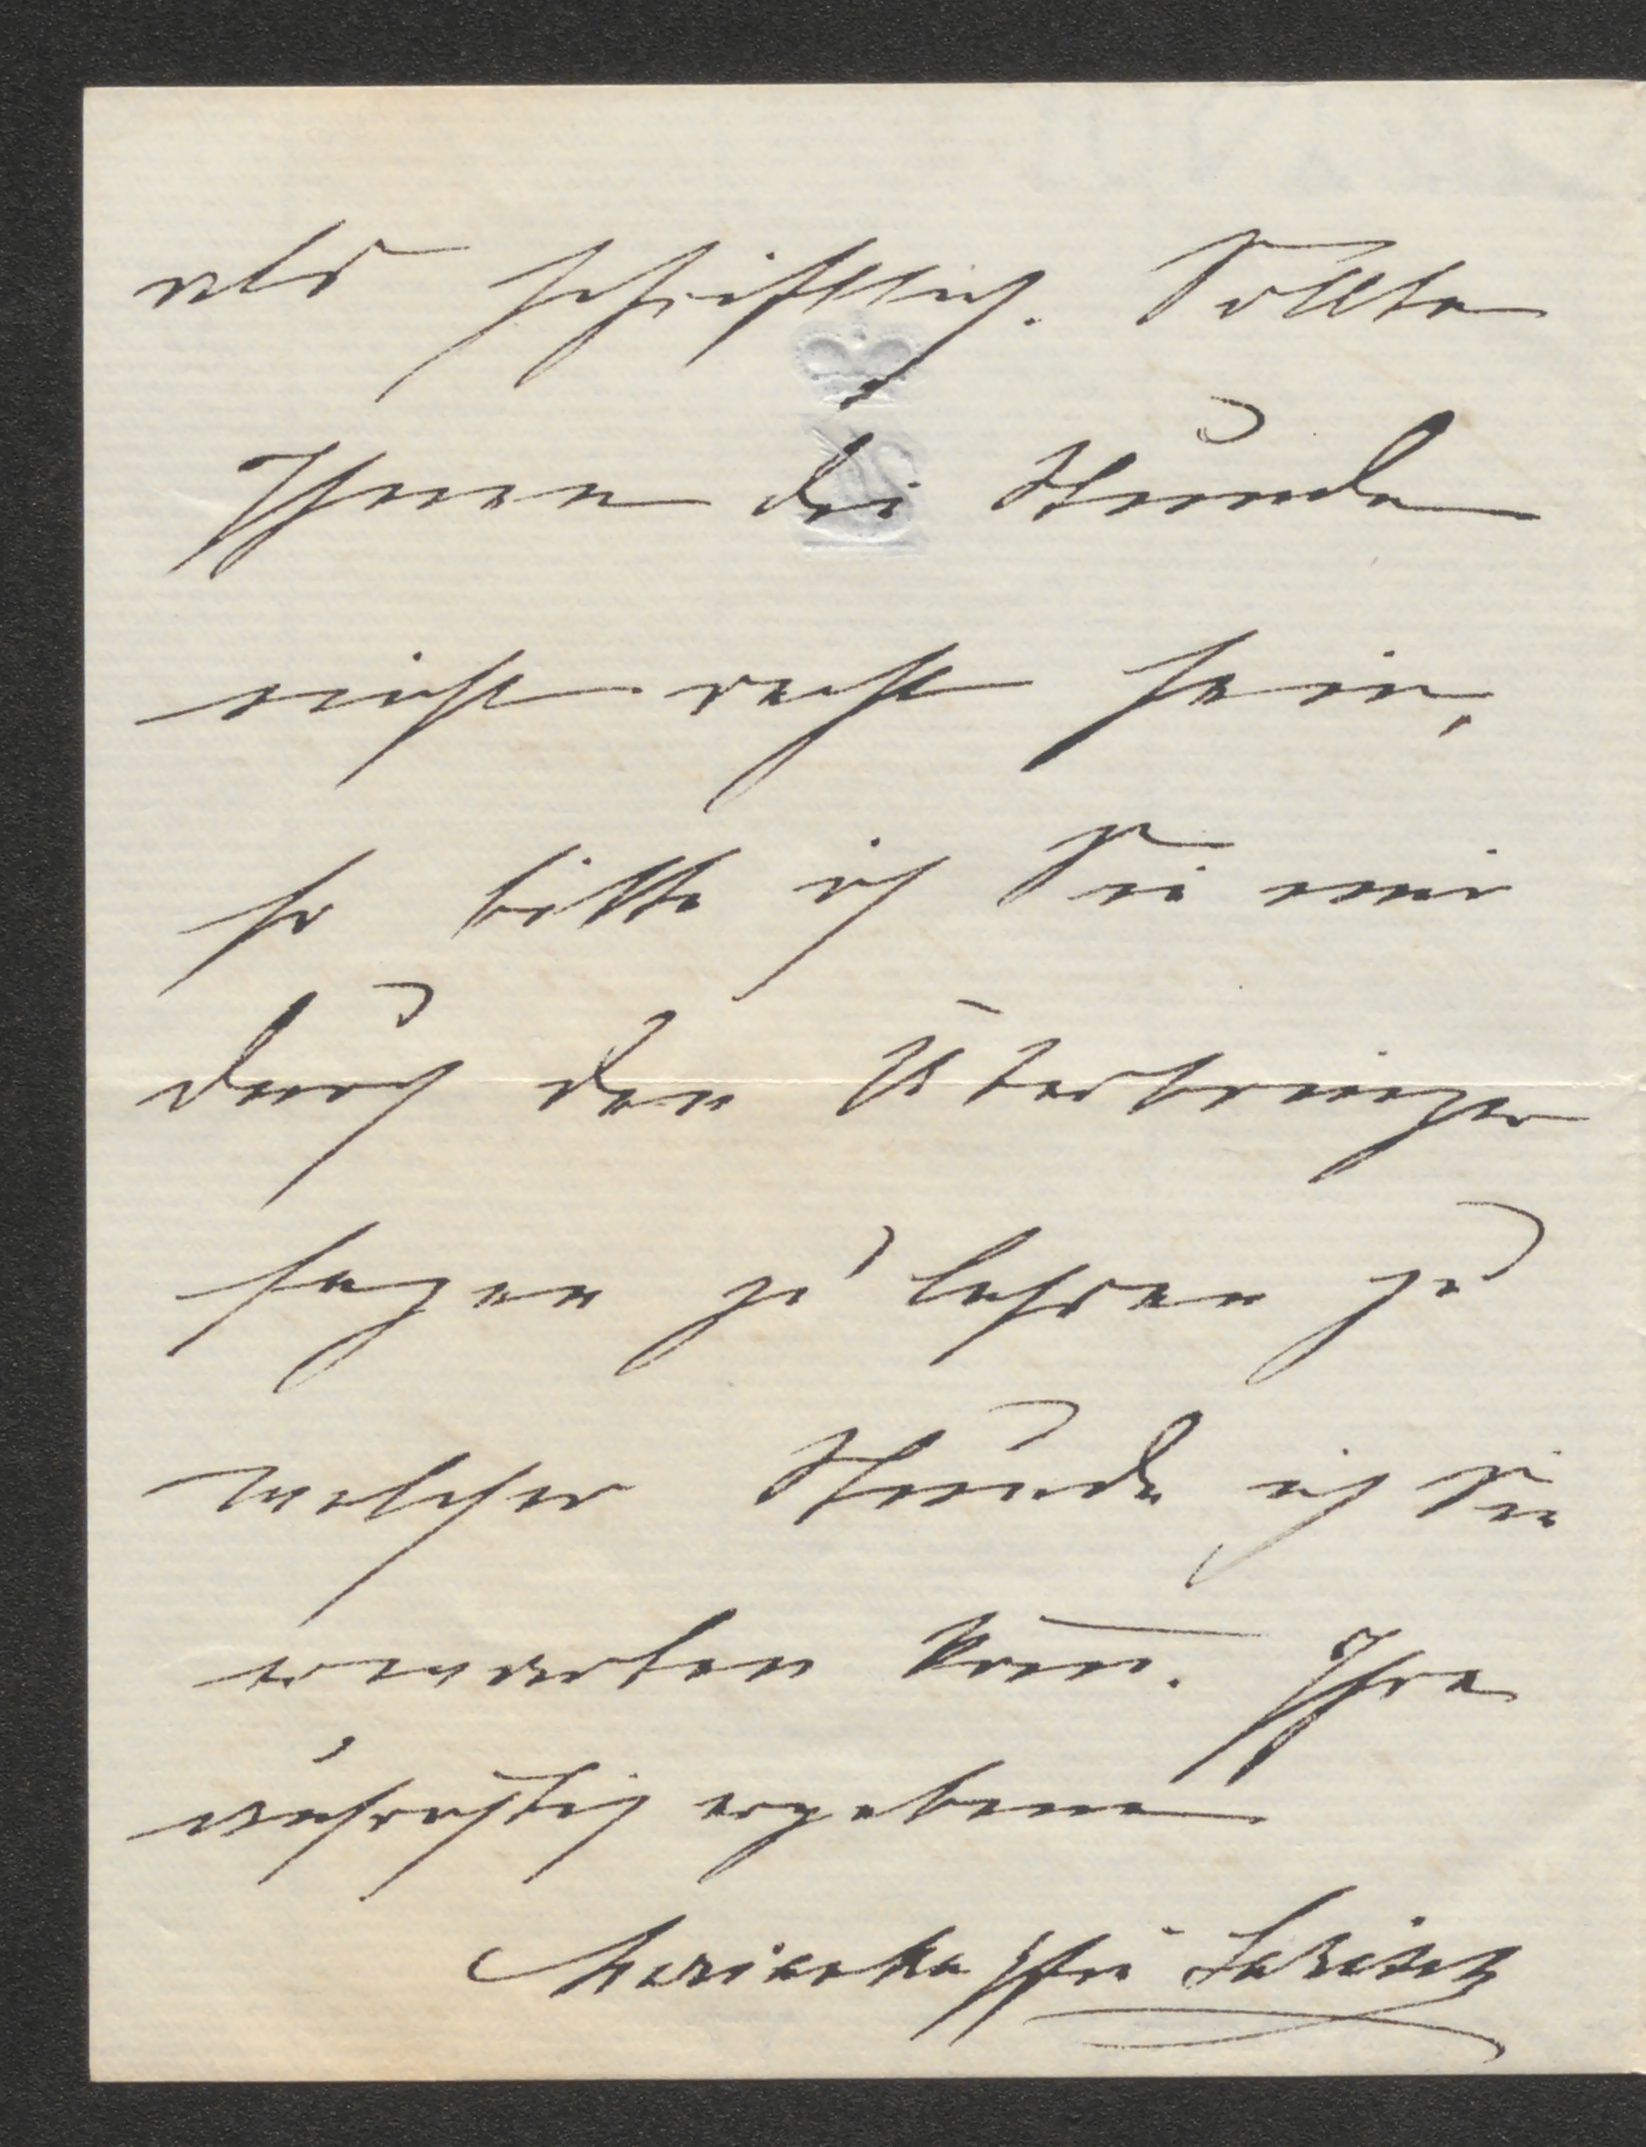 als schriftlich. Sollte
Ihnen die Stunde
nicht recht sein,
so bitte ich Sie mir
durch den Überbringer
sagen zu lassen zu
welcher Stunde ich Sie
erwarten kann. Ihre
aufrichtig ergebene
Larisch